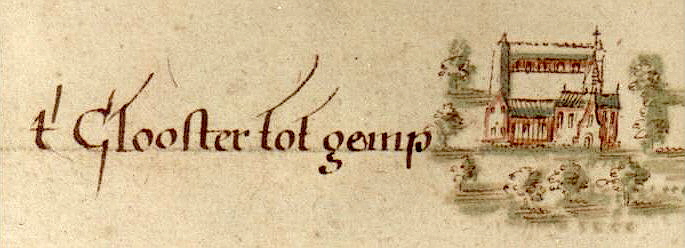 t' Clooster tot gemp